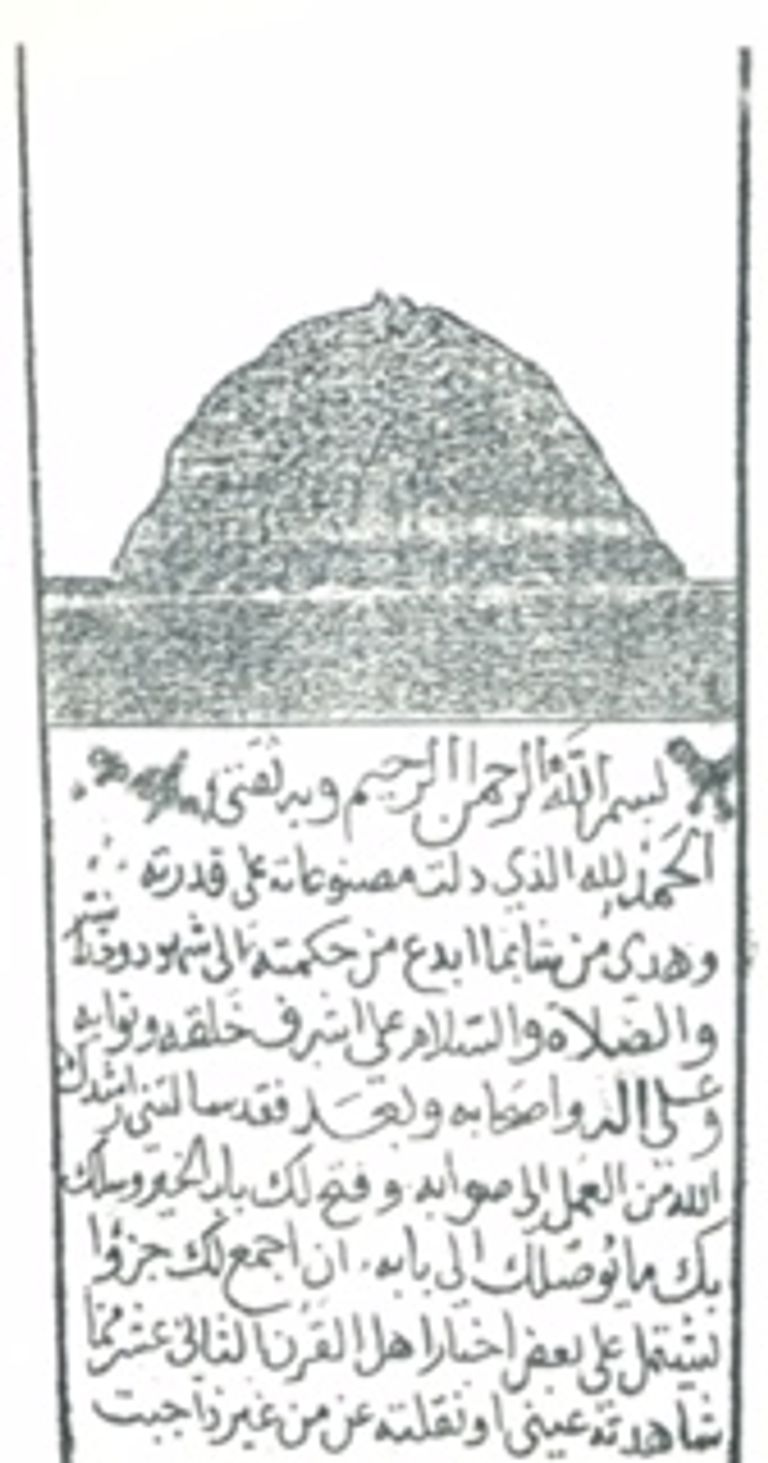 بسم الله الرحمن الرحيم وبه ثقتي
الحمد لله الذي دلت مصنوعاته على قدرته
وهدى من شا بما ابدع من حكمته الى شهود
والصلاة والسلام على اشرف خلقه ونوابه
وعلى اله واصحابه وبعد فقد سالتني ارشدك
الله من العمل الى صوابه وفتح لك باب الخير وسلك
بك ما يوصلك الى بابه ان اجمع لك جزؤا
يشتمل على بعض اخبار اهل القرن الثاني عشر مما
شاهدته عيني او نقلته عن من غبر فاجبت